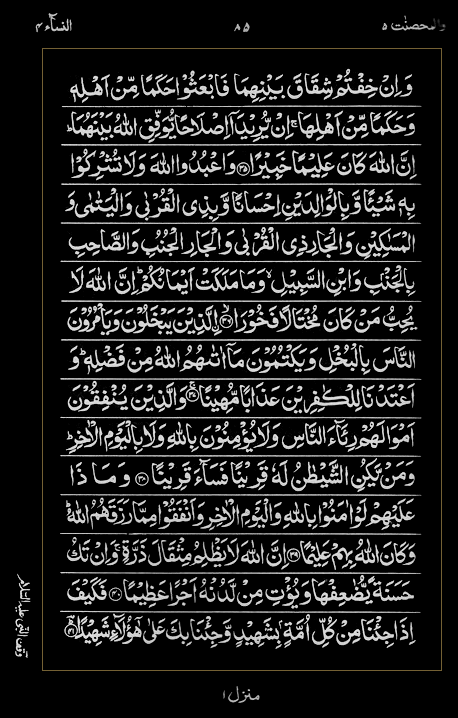 والمحصنٰت ۵ ۸۵ النسآء ۴
وَاِنْ خِفْتُمْ شِقَاقَ بَيْنِهِمَا فَابْعَثُوْا حَكَمًا مِّنْ اَهْلِهٖ
وَحَكَمًا مِّنْ اَهْلِهَا ۚ اِنْ يُّرِيْدَاۤ اِصْلَاحًا يُّوَفِّقِ اللّٰهُ بَيْنَهُمَا ؕ
اِنَّ اللّٰهَ كَانَ عَلِيْمًا خَبِيْرًا ۝۳۵ وَاعْبُدُوا اللّٰهَ وَلَا تُشْرِكُوْا
بِهٖ شَيْـًٔا وَّ بِالْوَالِدَيْنِ اِحْسَانًا وَّ بِذِى الْقُرْبٰى وَالْيَتٰمٰى وَ
الْمَسٰكِيْنِ وَالْجَارِ ذِى الْقُرْبٰى وَالْجَارِ الْجُنُبِ وَالصَّاحِبِ
بِالْجَنْۢبِ وَابْنِ السَّبِيْلِ ۙ وَمَا مَلَكَتْ اَيْمَانُكُمْ ؕ اِنَّ اللّٰهَ لَا
يُحِبُّ مَنْ كَانَ مُخْتَالًا فَخُوْرًا ۝۳۶ۙ الَّذِيْنَ يَبْخَلُوْنَ وَيَاْمُرُوْنَ
النَّاسَ بِالْبُخْلِ وَيَكْتُمُوْنَ مَاۤ اٰتٰىهُمُ اللّٰهُ مِنْ فَضْلِهٖ ؕ وَ
اَعْتَدْنَا لِلْكٰفِرِيْنَ عَذَابًا مُّهِيْنًا ۝۳۷ۚ وَالَّذِيْنَ يُنْفِقُوْنَ
اَمْوَالَهُمْ رِئَآءَ النَّاسِ وَلَا يُؤْمِنُوْنَ بِاللّٰهِ وَلَا بِالْيَوْمِ الْاٰخِرِ ؕ
وَمَنْ يَّكُنِ الشَّيْطٰنُ لَهٗ قَرِيْنًا فَسَآءَ قَرِيْنًا ۝۳۸ وَمَا ذَا
عَلَيْهِمْ لَوْ اٰمَنُوْا بِاللّٰهِ وَالْيَوْمِ الْاٰخِرِ وَاَنْفَقُوْا مِمَّا رَزَقَهُمُ اللّٰهُ ؕ
وَكَانَ اللّٰهُ بِهِمْ عَلِيْمًا ۝۳۹ اِنَّ اللّٰهَ لَا يَظْلِمُ مِثْقَالَ ذَرَّةٍ ۚ وَاِنْ تَكُ
حَسَنَةً يُّضٰعِفْهَا وَيُؤْتِ مِنْ لَّدُنْهُ اَجْرًا عَظِيْمًا ۝۴۰ فَكَيْفَ
اِذَا جِئْنَا مِنْ كُلِّ اُمَّةٍۭ بِشَهِيْدٍ وَّجِئْنَا بِكَ عَلٰى هٰۤؤُلَآءِ شَهِيْدًا ۝۴۱ؕ
وقف النبى عليه السلام
منزل ۱